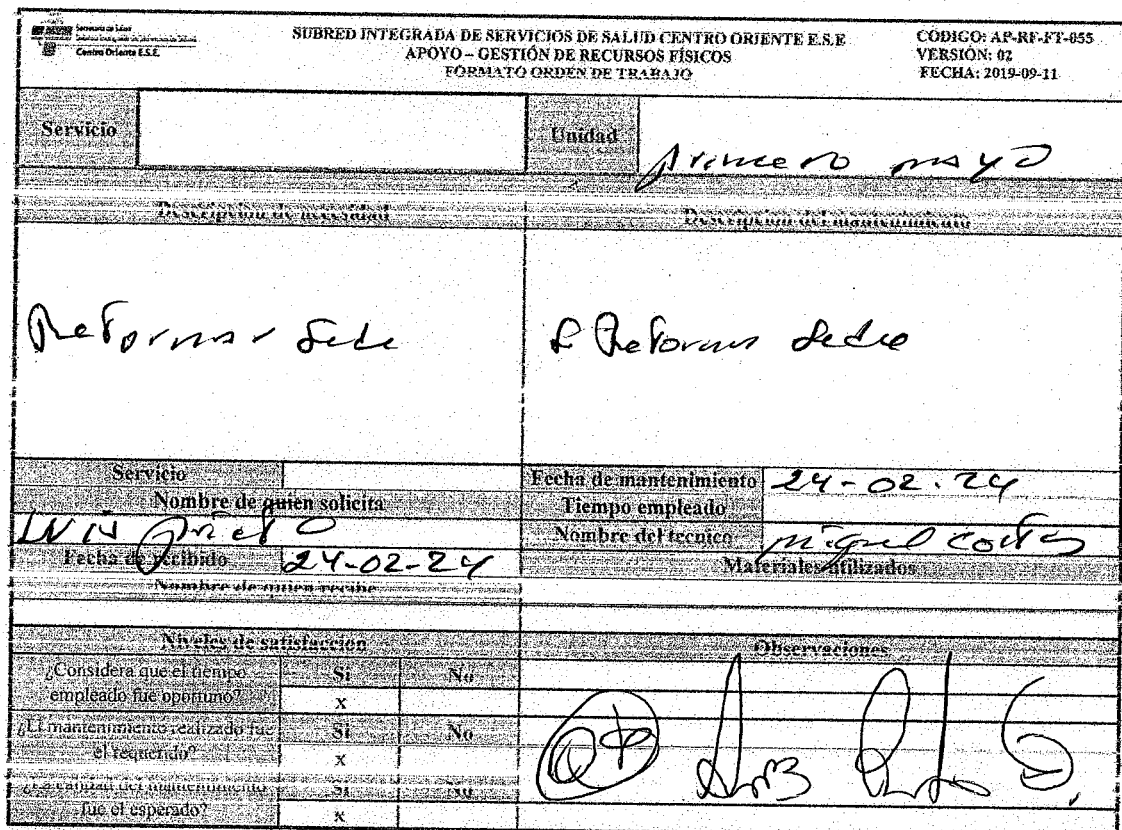 Secretaría de Salud
Centro Oriente E.S.E.
SUBRED INTEGRADA DE SERVICIOS DE SALUD CENTRO ORIENTE E.S.E
APOYO – GESTIÓN DE RECURSOS FÍSICOS
FORMATO ORDEN DE TRABAJO
CÓDIGO: AP-RF-FT-055
VERSIÓN: 02
FECHA: 2019-09-11
Servicio
Unidad
primero mayo
Descripción de necesidad
Descripción del mantenimiento
Reformar Sede
Reforma Sede
Servicio
Nombre de quien solicita
Luis Prieto
Fecha de recibido 24-02-24
Nombre de quien recibe
Fecha de mantenimiento 24-02-24
Tiempo empleado
Nombre del tecnico miguel cortes
Materiales utilizados
Niveles de satisfacción
Observaciones
¿Considera que el tiempo empleado fue oportuno?
Si No
x
¿El mantenimiento realizado fue el requerido?
Si No
x
¿La calidad del mantenimiento fue el esperado?
Si No
x